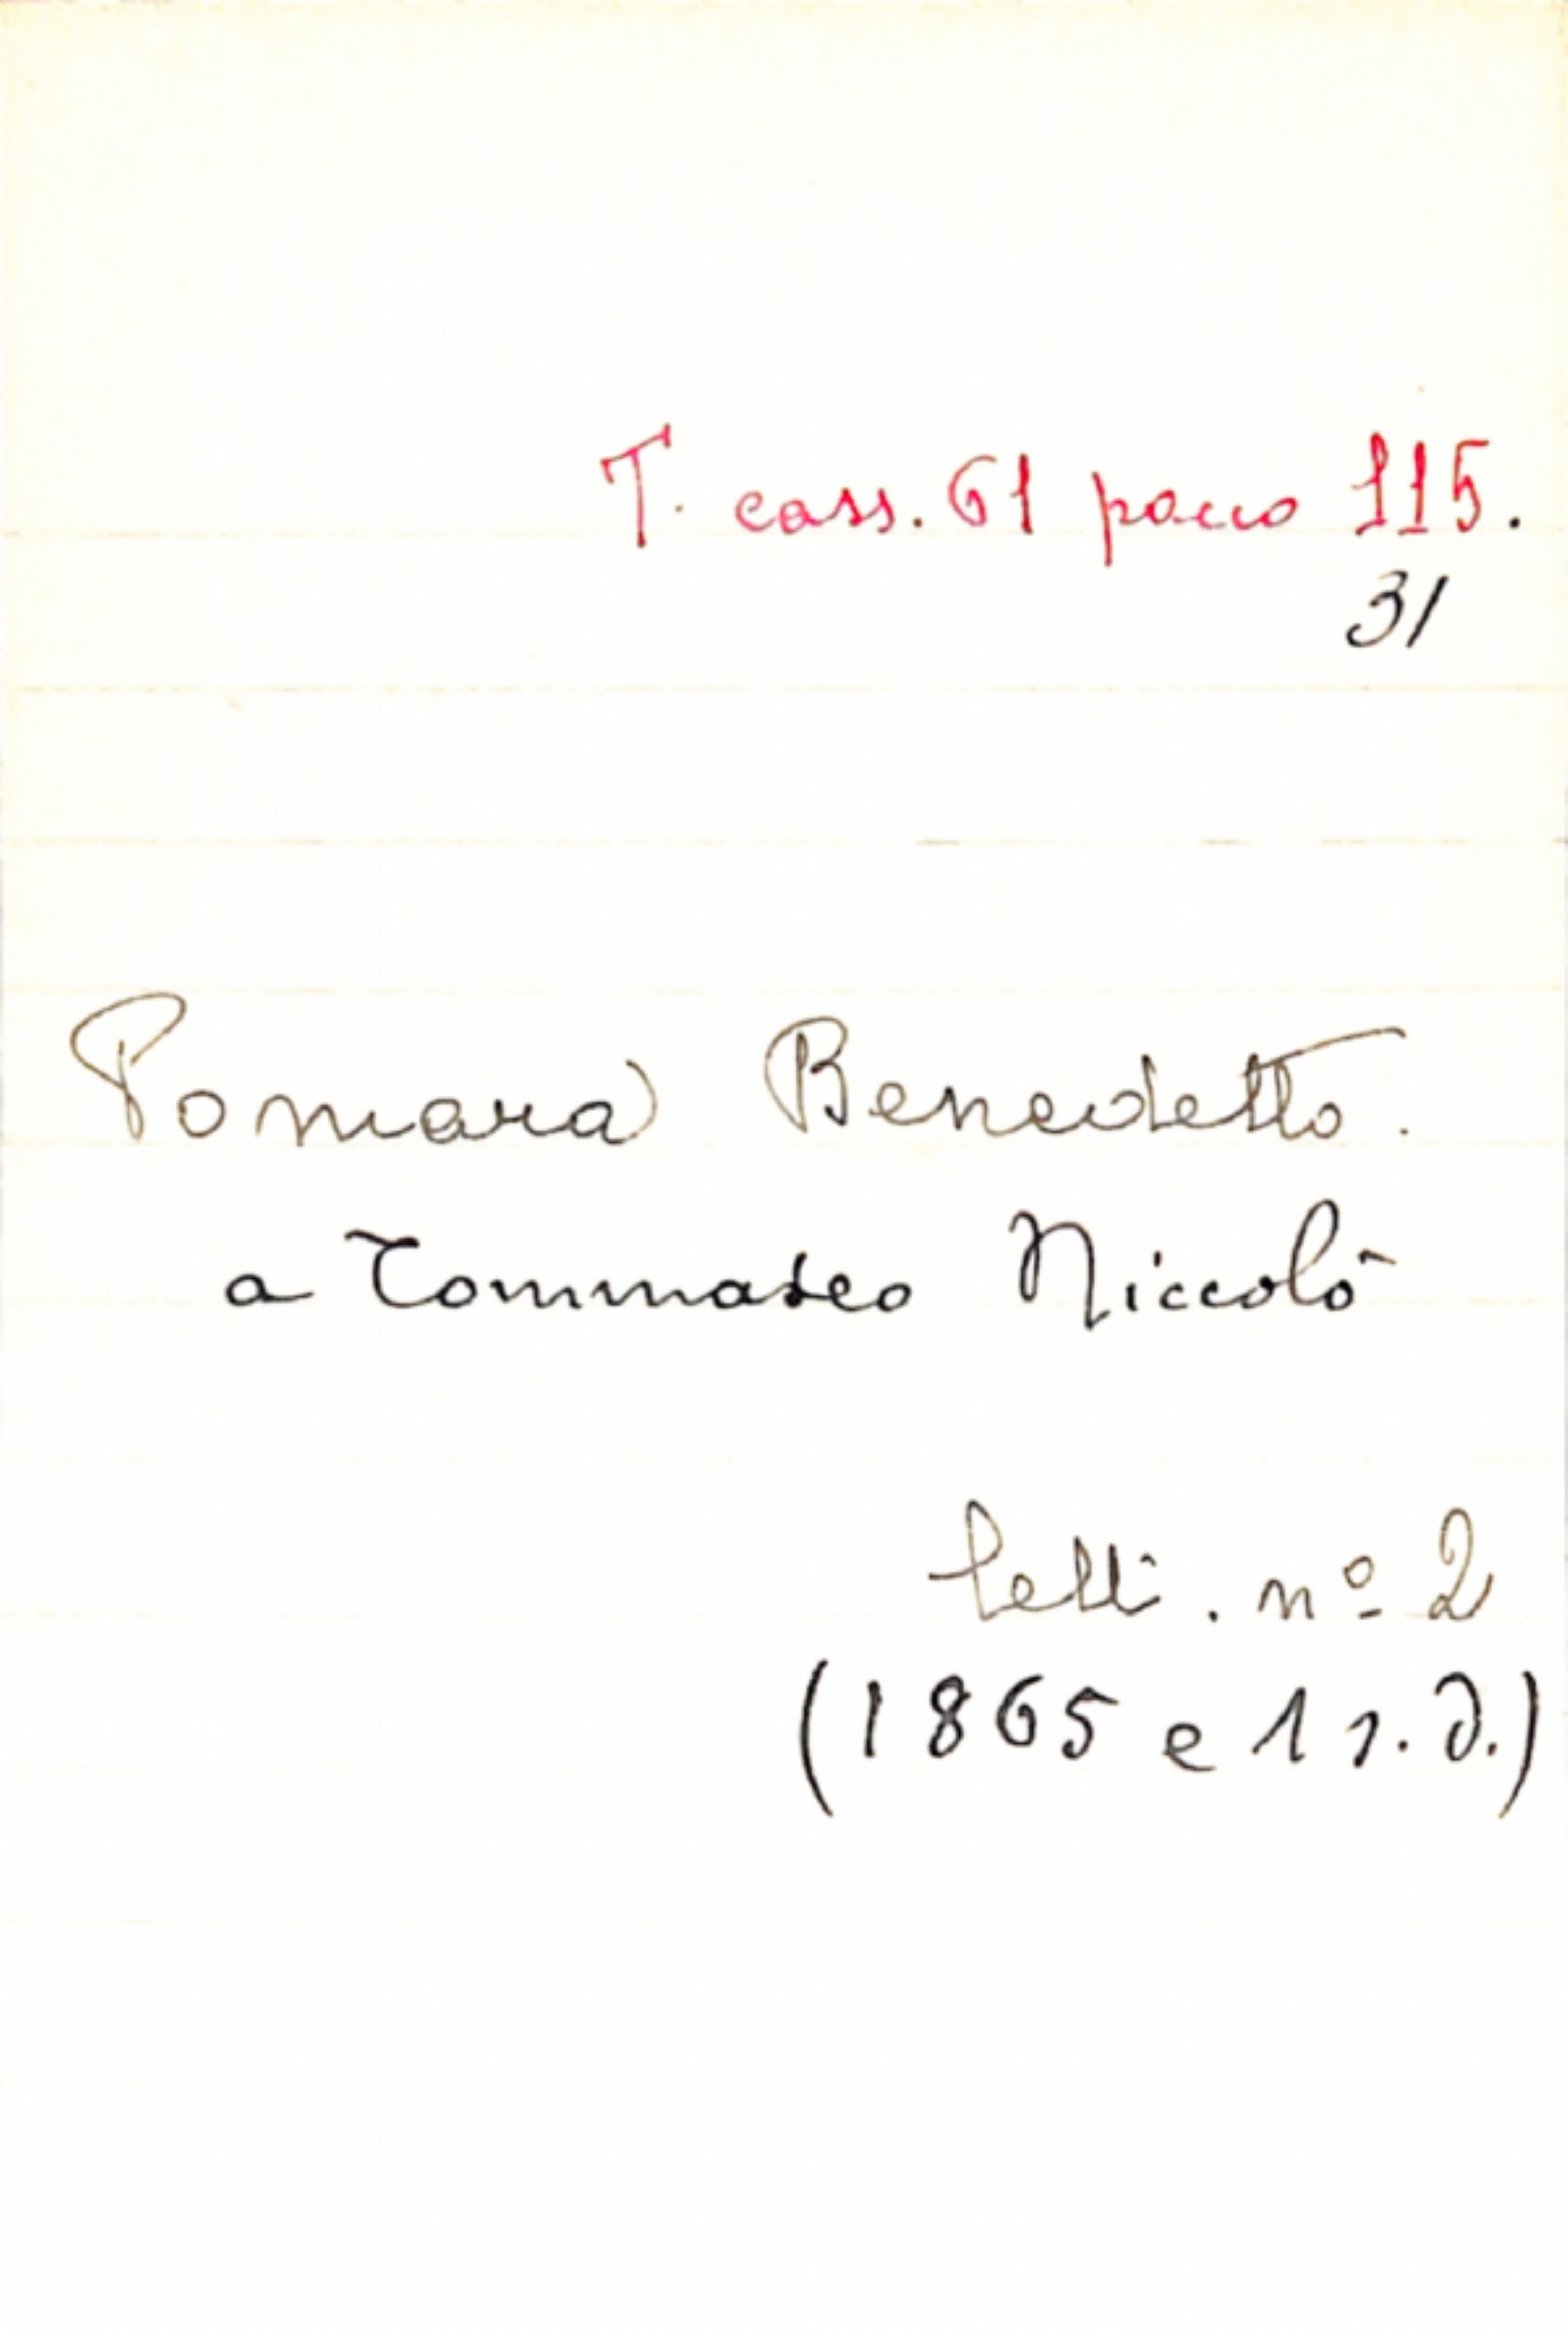 T. cass. 61 pacco 115.
31
Pomara Benedetto.
a Tommaseo Niccolò
Lett. nº 2
(1865 e 1 s.d.)